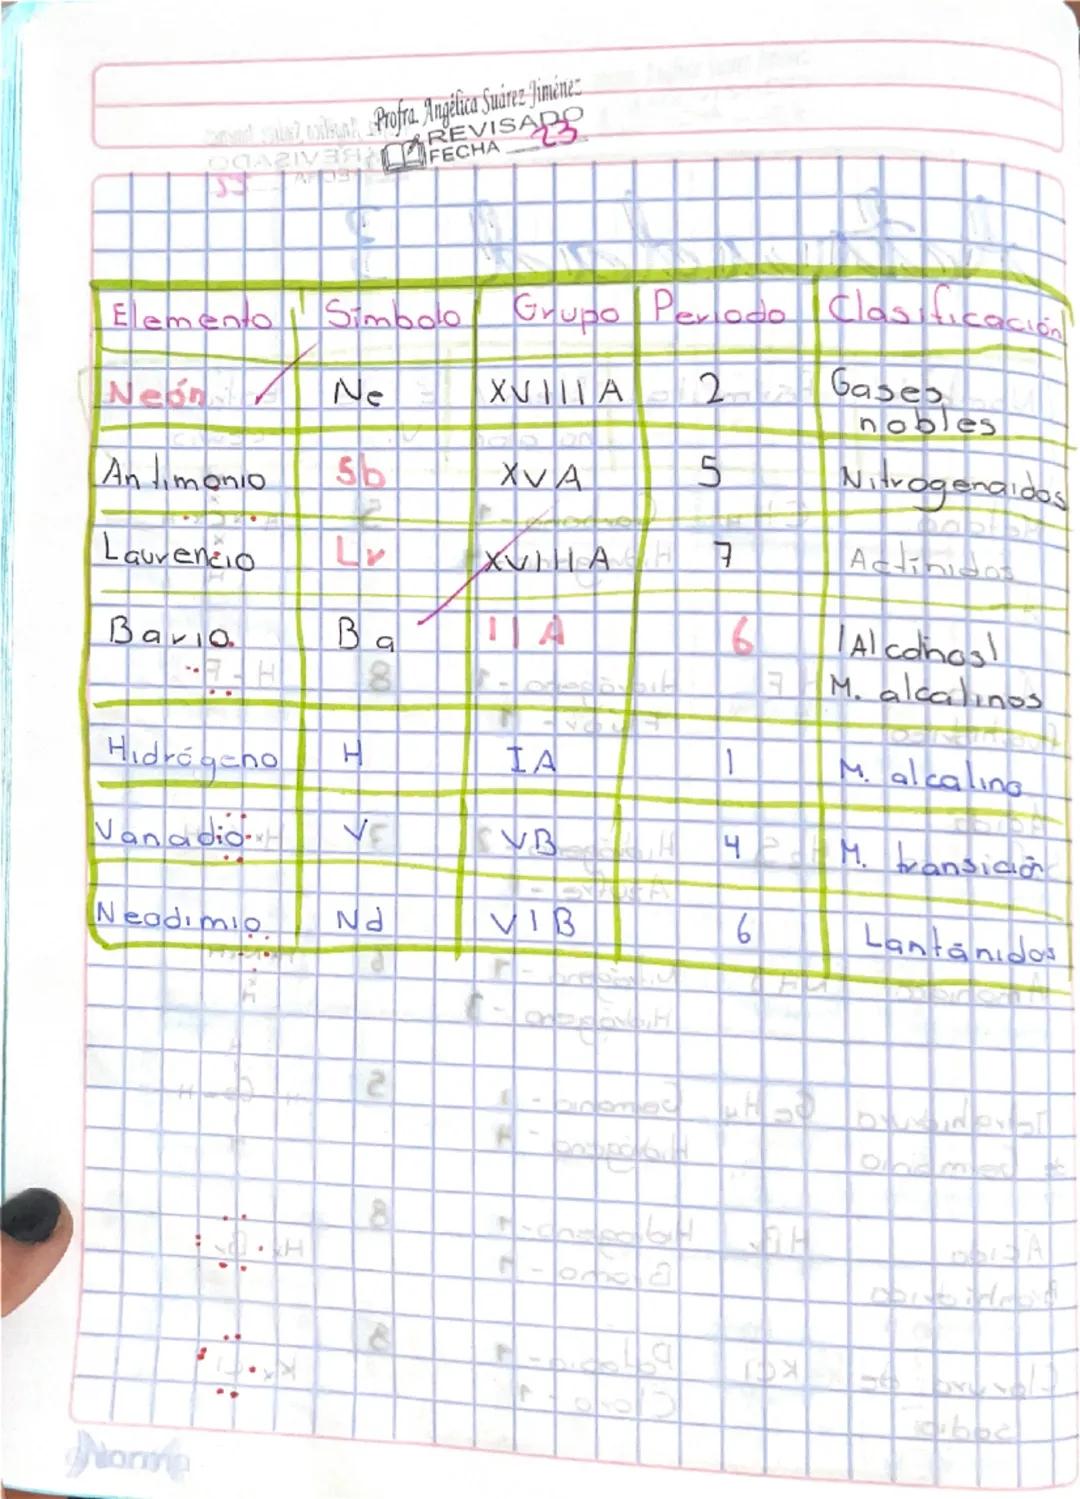 Profra. Angélica Suárez Jiménez
REVISADO
FECHA 23
Elemento Símbolo Grupo Periodo Clasificación
Neón Ne XVIII A 2 Gases
nobles
Antimonio Sb XVA 5 Nitrogenoidos
Laurencio Lr XVIII A 7 Actínidos
Bario Ba II A 6
M. alcalinos
Hidrógeno H IA 1 M. alcalino
Vanadio V VB 4 M. transición
Neodimio Nd VIB 6 Lantánidos
Norma